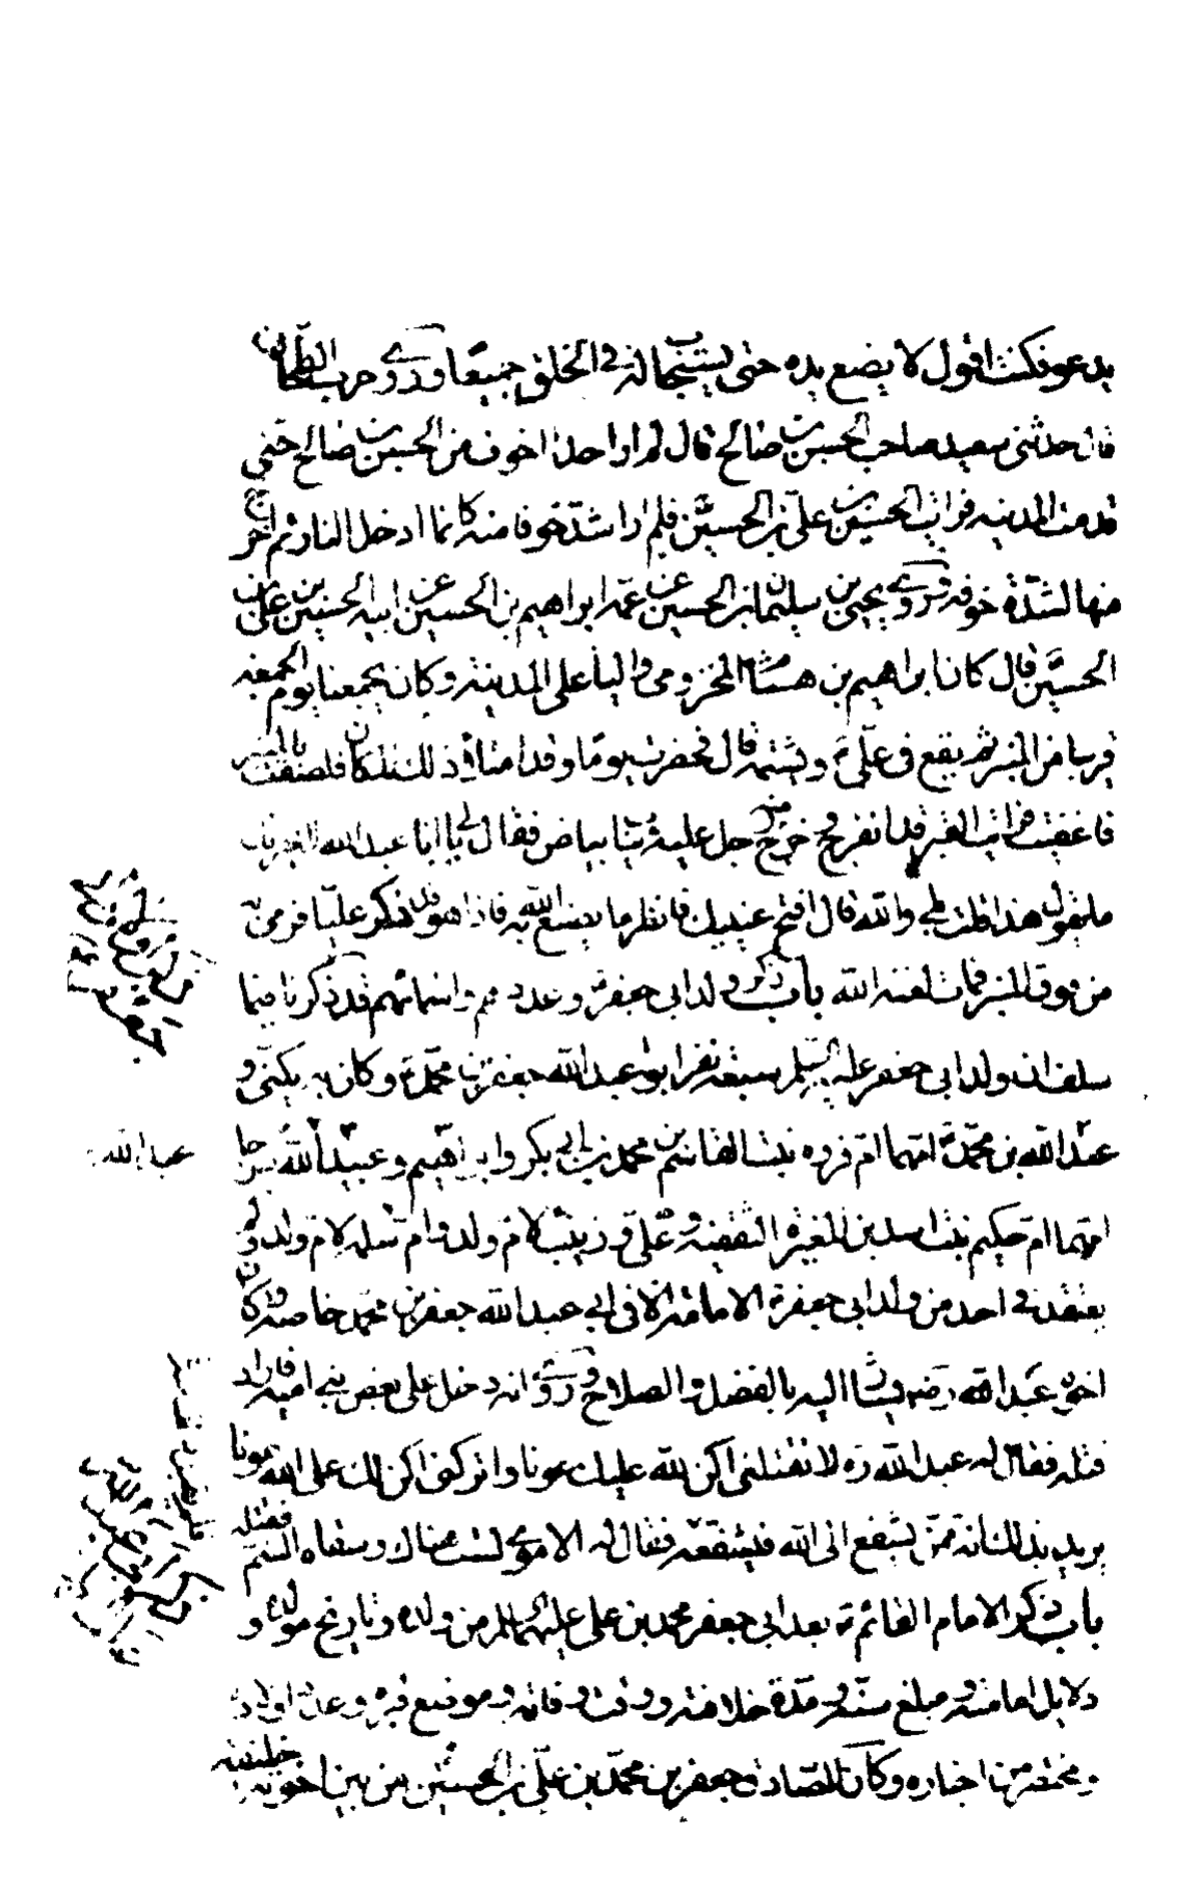 يدعو فكنت اقول لا يضع يده حتى يستجاب له في الخلق جميعا وروى حرب الطحان
قال حدثني سعيد صاحب الحسن بن صالح قال لم ار احدا اخوف من الحسن بن صالح حتى
قدمت المدينه فرايت الحسين بن علي بن الحسين فلم ار اشد خوفا منه كانما ادخل النار ثم اخرج
منها لشدة خوفه وروى يحيى بن سليمان بن الحسين عن عمه ابراهيم بن الحسين عن ابيه الحسين بن علي بن
الحسين قال كان ابراهيم بن هشام المخزومي واليا على المدينة وكان يجمعنا يوم الجمعة
قريبا من المنبر ثم يقع في علي ع ويشتمه قال فحضرت يوما وقد امتلا ذلك المكان فلصقت بالمنبر
فاغفيت فرايت القبر قد انفرج وخرج منه رجل عليه ثياب بياض فقال لي يا ابا عبد الله الا يحزنك
ما يقول هذا قلت بلى والله قال افتح عينيك فانظر ما يصنع الله به فاذا هو قد ذكر عليا فرمي به
من فوق المنبر فمات لعنه الله باب ذكر ولد ابي جعفر ع وعددهم واسمائهم قد ذكرنا فيما
سلف ان ولد ابي جعفر عليه السلم سبعة نفر ابو عبد الله جعفر بن محمد ع وكان به يكنى و
عبد الله بن محمد امهما ام فروه بنت القاسم بن محمد بن ابي بكر وابراهيم وعبيد الله درجا
امهما ام حكيم بنت اسيد بن المغيره الثقفية وعلي وزينب لام ولد وام سلمه لام ولد ولم
يعتقد في احد من ولد ابي جعفر ع الامامة الا في ابي عبد الله جعفر بن محمد خاصة وكان
اخوه عبد الله رضه يشار اليه بالفضل والصلاح وروى انه دخل على بعض بني امية فاراد
قتله فقال له عبد الله ره لا تقتلني اكن لله عليك عونا واتركني اكن لك على الله عونا
يريد بذلك انه ممن يشفع الى الله فيشفعه فقال له الاموي لست هناك وسقاه السم فقتله
باب ذكر الامام القائم بعد ابي جعفر محمد بن علي عليهما السلم من ولده وتاريخ مولده و
دلايل امامته ومبلغ سنه ومدة خلافته ووقت وفاته وموضع قبره وعدد اولاده
ومختصر من اخباره وكان الصادق جعفر بن محمد بن علي بن الحسين من بين اخوته خليفة
عبد الله